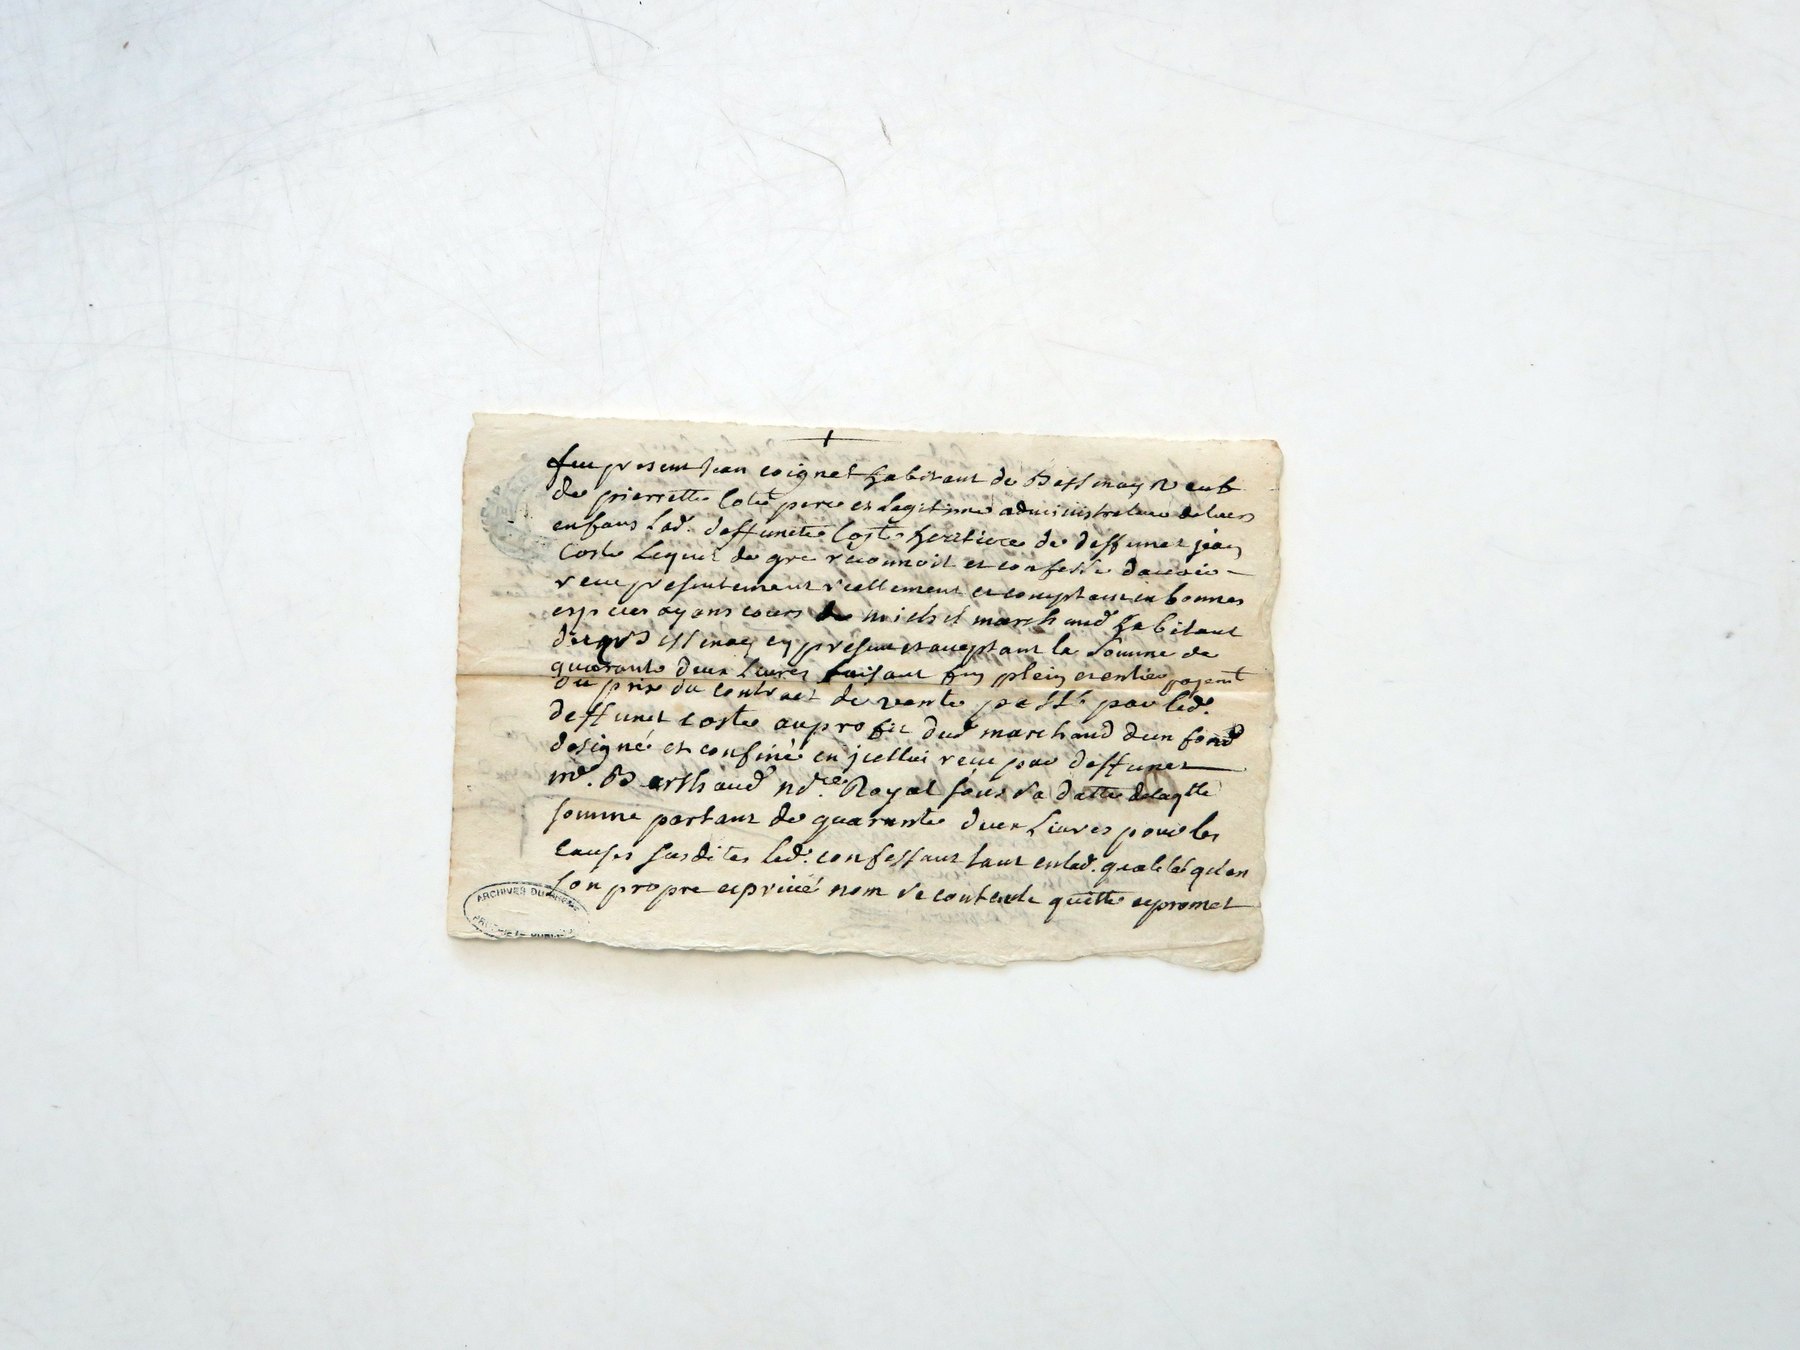 fut present Jean coignet habitant de Bessenay veuf
de pierrette Coste pere et Legitime administrateur de leurs
enfans Lad. deffuncte Coste heritiere de deffunct jean
Coste Lequel de gre reconnoit et confesse dauoir
receu presentement reellement et comptant en bonnes
especes ayans cours de michel marchand habitant
Bessenay cy present et acceptant la somme de
quarante deux Liures faisant fin plein et entier payemt
du prix du contract de vente passé par led.
deffunct coste au profit dud marchand dun fond
designé et confiné en jcelluy receu par deffunct
me. Barthaud nore. Royal sous sa datte de laqlle
somme partant de quarante deux Liures pour les
causes susdites led. confessant tant en lad. qualité qu'en
son propre et priué nom se contente quitte et promet
ARCHIVES DU RHONE
PROPRIETE PUBLIQUE